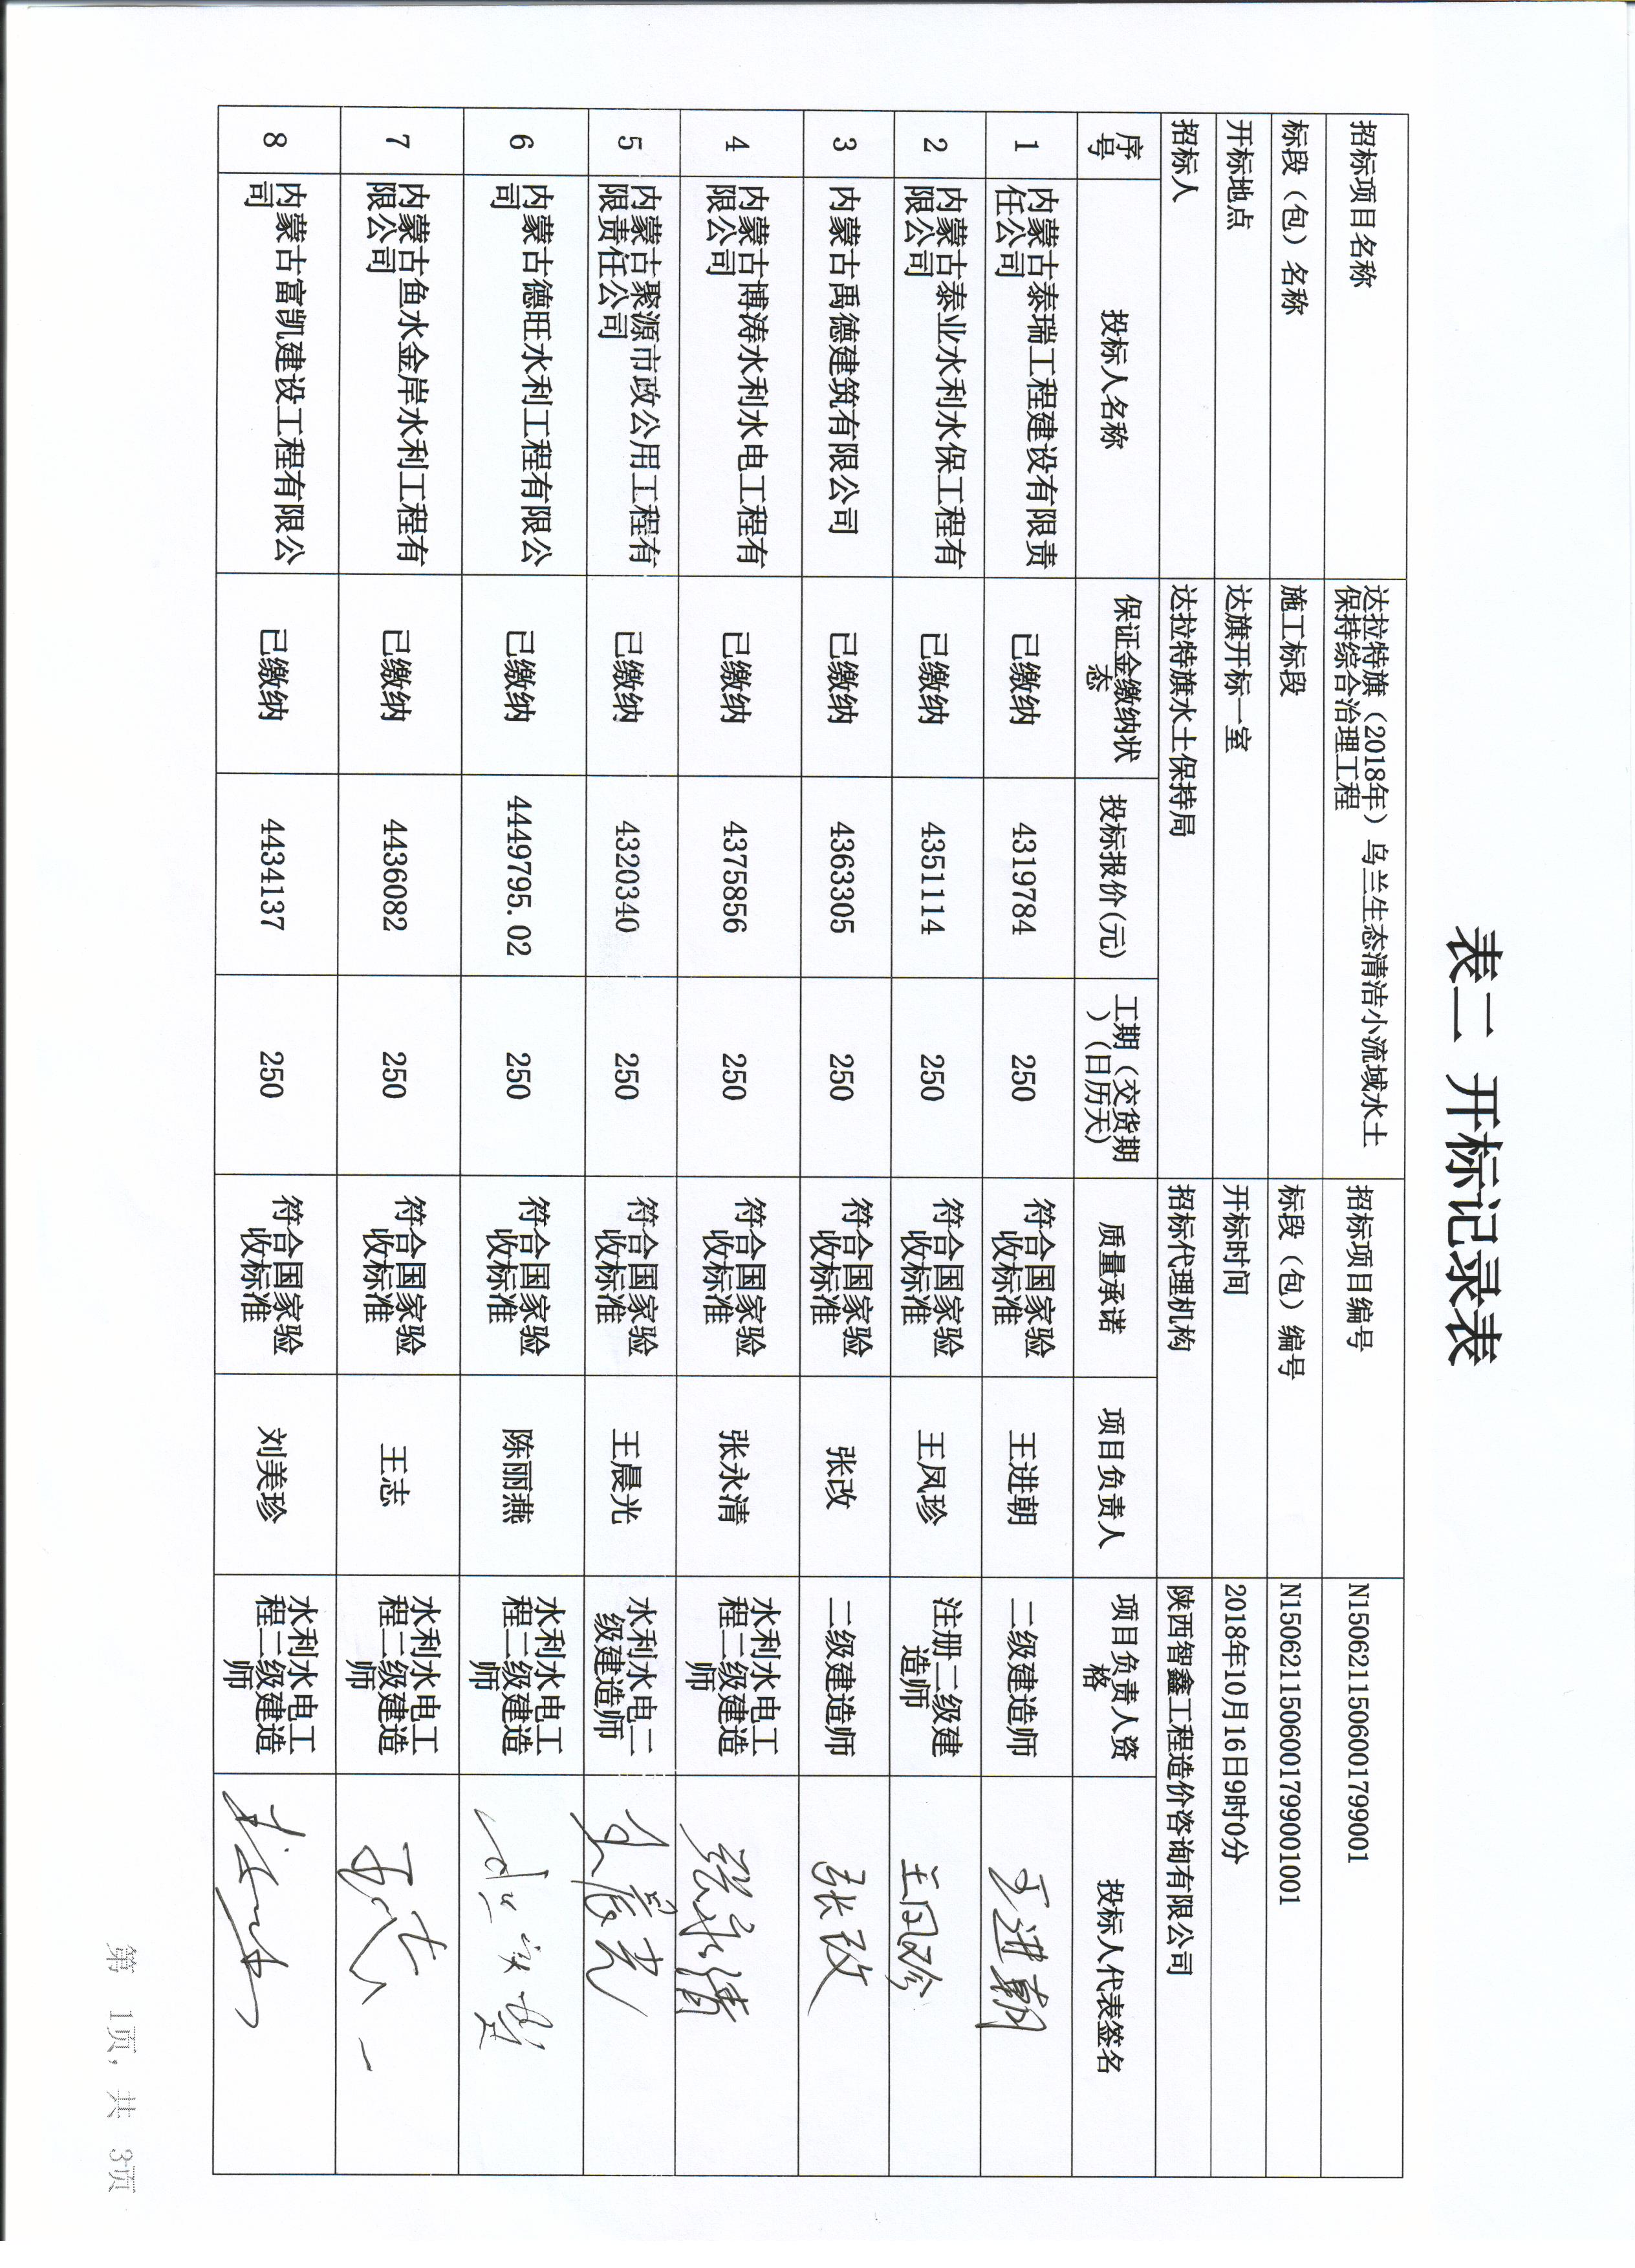 表二 开标记录表
招标项目名称 达拉特旗（2018年）乌兰生态清洁小流域水土 招标项目编号 N1506211506001799001
保持综合治理工程
标段（包）名称 施工标段 标段（包）编号 N1506211506001799001001
开标地点 达旗开标一室 开标时间 2018年10月16日9时0分
招标人 达拉特旗水土保持局 招标代理机构 陕西智鑫工程造价咨询有限公司
序 投标人名称 保证金缴纳状 投标报价(元) 工期（交货期 质量承诺 项目负责人 项目负责人资 投标人代表签名
号 态 ）(日历天) 格
1 内蒙古泰瑞工程建设有限责 已缴纳 4319784 250 符合国家验 王进朝 二级建造师 王进朝
任公司 收标准
2 内蒙古泰业水利水保工程有 已缴纳 4351114 250 符合国家验 王凤珍 注册二级建 王凤珍
限公司 收标准 造师
3 内蒙古禹德建筑有限公司 已缴纳 4363305 250 符合国家验 张改 二级建造师 张改
收标准
4 内蒙古博涛水利水电工程有 已缴纳 4375856 250 符合国家验 张永清 水利水电工 张永清
限公司 收标准 程二级建造
师
5 内蒙古聚源市政公用工程有 已缴纳 4320340 250 符合国家验 王晨光 水利水电二 王晨光
限责任公司 收标准 级建造师
6 内蒙古德旺水利工程有限公 已缴纳 4449795.02 250 符合国家验 陈丽燕 水利水电工
司 收标准 程二级建造
师
7 内蒙古鱼水金岸水利工程有 已缴纳 4436082 250 符合国家验 王志 水利水电工
限公司 收标准 程二级建造
师
8 内蒙古富凯建设工程有限公 已缴纳 4434137 250 符合国家验 刘美珍 水利水电工
司 收标准 程二级建造
师
第 1页, 共 3页